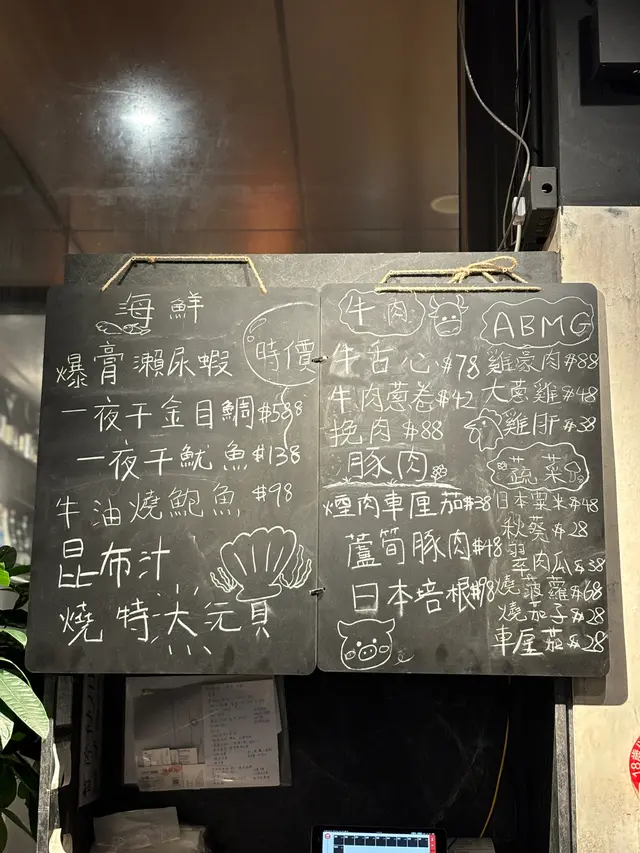 海鮮
爆膏瀨尿蝦
時價
一夜干金目鯛$588
一夜干魷魚$138
牛油燒鮑魚 $98
昆布汁
燒特大元貝
牛肉
牛舌心 $78
牛肉蔥卷 $42
挽肉 $88
豚肉
煙肉車厘茄$38
蘆筍豚肉$48
日本培根$98
ABMG
雞豪肉$88
大蔥雞$48
雞肝$38
蔬菜
日本粟米$48
秋葵$28
翠肉瓜$38
燒菠蘿$68
燒茄子$28
車厘茄$28